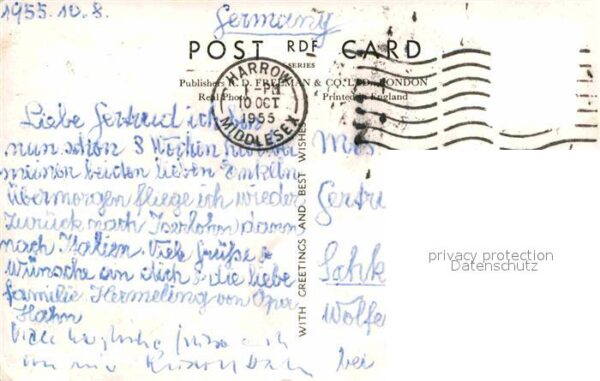 1955.10.8.
Germany
POST RDF CARD
SERIES
Publishers R. D. FREEMAN & CO. LTD. LONDON
Real Photo Printed in England
HARROW
1-PM
10 OCT
1955
MIDDLESEX
Liebe Gertrud ich bin
nun schon 3 Wochen hier bei
meinen beiden lieben Enkeln
übermorgen fliege ich wieder
zurück nach Iserlohn dann
nach Italien. Viele Grüße &
Wünsche an dich & die liebe
Familie Hermeling von Opa
Hahn
Viele herzliche Grüße auch
von mir
WITH GREETINGS AND BEST WISHES
Gertru
Wolfe
bei
privacy protection
Datenschutz